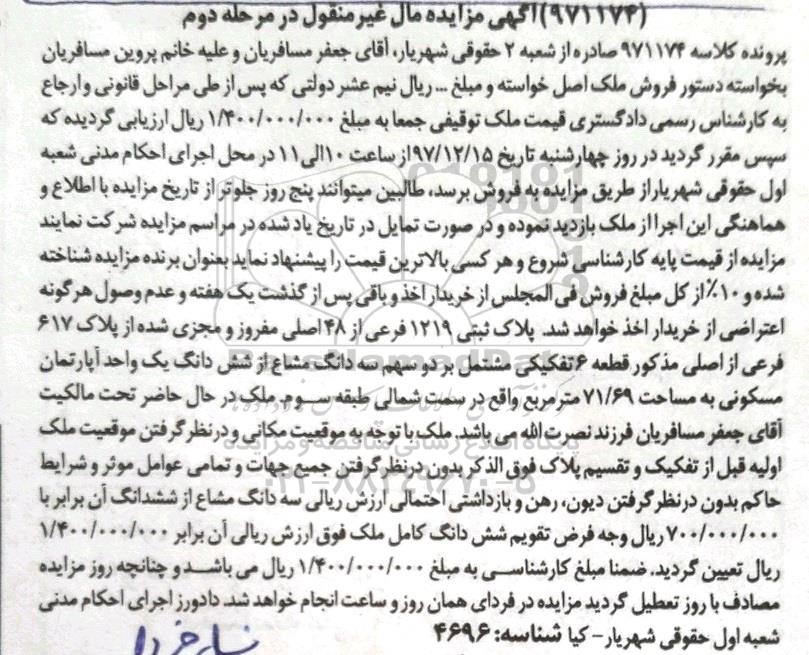 (۹۷۱۱۷۴)آگهی مزایده مال غیرمنقول در مرحله دوم
پرونده کلاسه ۹۷۱۱۷۴ صادره از شعبه ۲ حقوقی شهریار، آقای جعفر مسافریان و علیه خانم پروین مسافریان
بخواسته دستور فروش ملک اصل خواسته و مبلغ ... ریال نیم عشر دولتی که پس از طی مراحل قانونی و ارجاع
به کارشناس رسمی دادگستری قیمت ملک توقیفی جمعا به مبلغ ۱/۴۰۰/۰۰۰/۰۰۰ ریال ارزیابی گردیده که
سپس مقرر گردید در روز چهارشنبه تاریخ ۹۷/۱۲/۱۵از ساعت ۱۰الی۱۱ در محل اجرای احکام مدنی شعبه
اول حقوقی شهریاراز طریق مزایده به فروش برسد، طالبین میتوانند پنج روز جلوتر از تاریخ مزایده با اطلاع و
هماهنگی این اجرا از ملک بازدید نموده و در صورت تمایل در تاریخ یاد شده در مراسم مزایده شرکت نمایند
مزایده از قیمت پایه کارشناسی شروع و هر کسی بالاترین قیمت را پیشنهاد نماید بعنوان برنده مزایده شناخته
شده و ۱۰٪ از کل مبلغ فروش فی المجلس از خریدار اخذ و باقی پس از گذشت یک هفته و عدم وصول هرگونه
اعتراضی از خریدار اخذ خواهد شد. پلاک ثبتی ۱۲۱۹ فرعی از ۴۸ اصلی مفروز و مجزی شده از پلاک ۶۱۷
فرعی از اصلی مذکور قطعه ۶تفکیکی مشتمل بر دو سهم سه دانگ مشاع از شش دانگ یک واحد آپارتمان
مسکونی به مساحت ۷۱/۶۹ متر مربع واقع در سمت شمالی طبقه سوم. ملک در حال حاضر تحت مالکیت
آقای جعفر مسافریان فرزند نصرت الله می باشد. ملک با توجه به موقعیت مکانی و درنظر گرفتن موقعیت ملک
اولیه قبل از تفکیک و تقسیم پلاک فوق الذکر بدون درنظر گرفتن جمیع جهات و تمامی عوامل موثر و شرایط
حاکم بدون درنظر گرفتن دیون، رهن و بازداشتی احتمالی ارزش ریالی سه دانگ مشاع از ششدانگ آن برابر با
۷۰۰/۰۰۰/۰۰۰ ریال وجه فرض تقویم شش دانگ کامل ملک فوق ارزش ریالی آن برابر ۱/۴۰۰/۰۰۰/۰۰۰
ریال تعیین گردید. ضمنا مبلغ کارشناسی به مبلغ ۱/۴۰۰/۰۰۰/۰۰۰ ریال می باشد و چنانچه روز مزایده
مصادف با روز تعطیل گردید مزایده در فردای همان روز و ساعت انجام خواهد شد. دادورز اجرای احکام مدنی
شعبه اول حقوقی شهریار- کیا شناسه: ۴۶۹۶